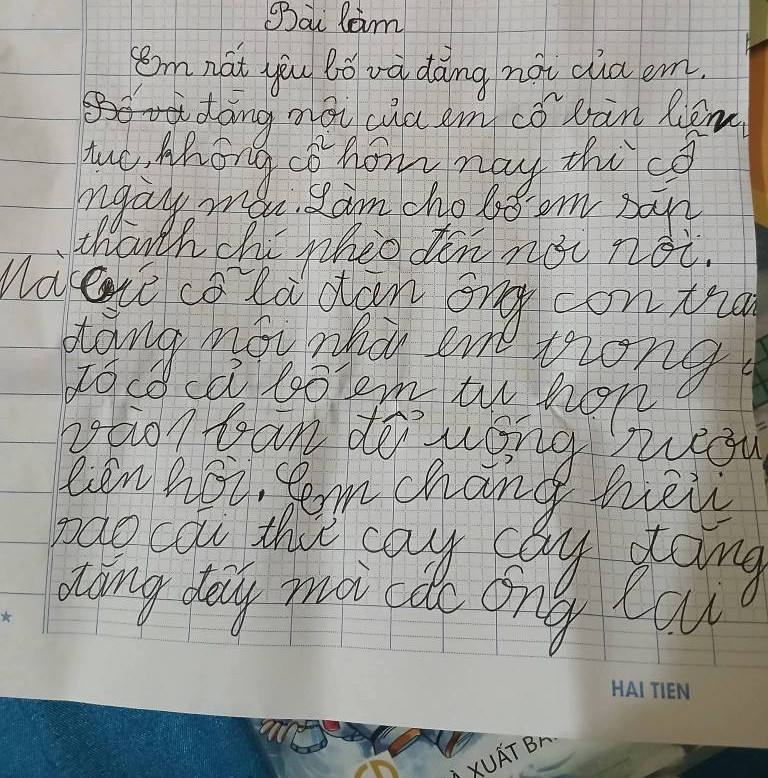 Bài làm
Em rất yêu bố và đằng nội của em.
Bố và đằng nội của em cỗ bàn liên
tục, không cỗ hôm nay thì cỗ
ngày mai. Làm cho bố em sắp
thành chí phèo đến nơi rồi.
Mà cứ cỗ là đàn ông con trai
đằng nội nhà em trong
đó có cả bố em tụ họp
vào 1 bàn để uống rượu
liên hồi. Em chẳng hiểu
sao cái thứ cay cay đắng
đắng đấy mà các ông lại
HAI TIEN
XUẤT BẢ